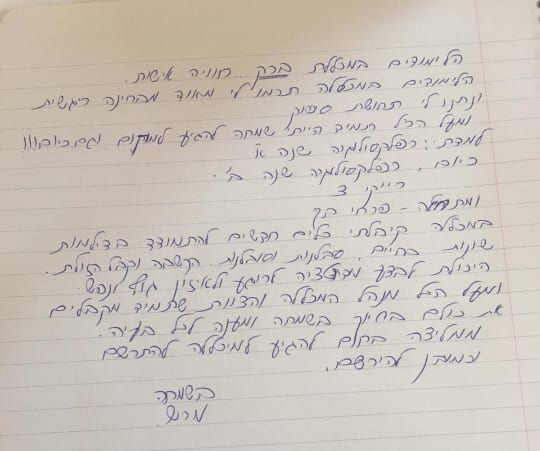 הלימודים במכללת ברק... חוויה אישית.
הלימודים במכללה תרמו לי מאוד מבחינה ריגשית
ונתנו לי תחושת סיפוק
ומעל הכל תמיד הייתי שמחה להגיע למקום וגם כיום!!!
למדתי: רפלקסולוגיה שנה א'
כיום, רפלקסולוגיה שנה ב'.
רייקי 3
ומתחילה - פרחי באך
במכללה קיבלתי כלים חדשים להתמודד בדילמות
שונות בחיים, סבלנות וסובלנות. הקשבה וקבל הזולת.
היכולת לבצע מדיטציה לרוגע ולאיזון גוף ונפש.
ומעל הכל מנהל המכללה והצוות שתמיד מקבלים
את כולם בחיוך בשמחה ומענה לכל בעיה.
ממליצה בחום להגיע למיכללה להתרשם
וכמובן להירשם.
בשמחה